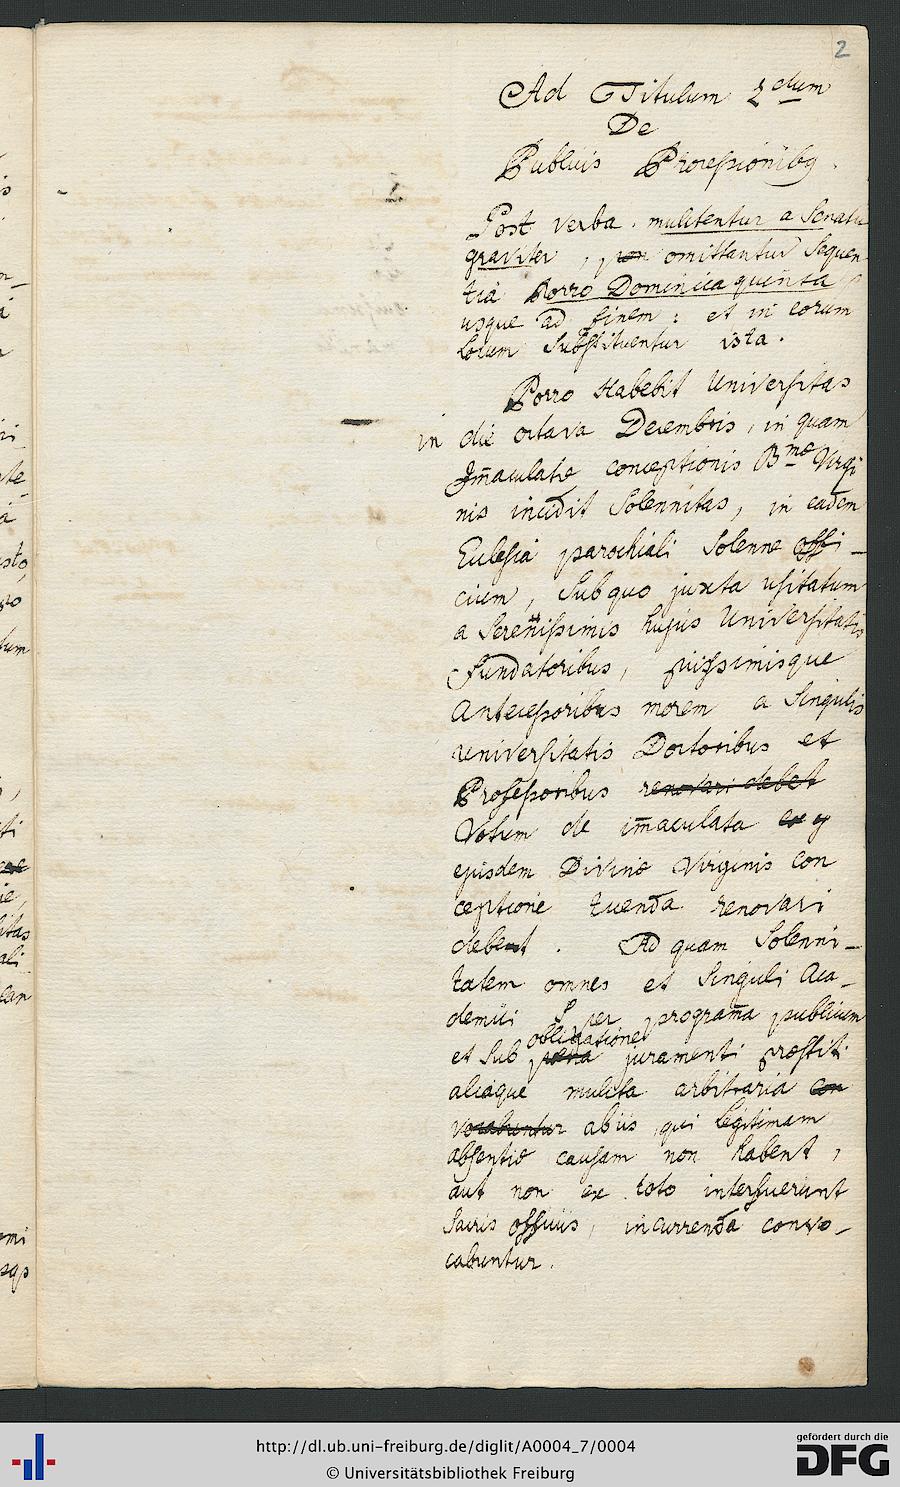 2
Ad Titulum 2dum
De
Publicis Processionibq.
Post verba. mulctentur a Senatu
graviter, omittantur Sequen-
tia Porro Dominica quinta
usque ad finem: et in eorum
locum Substituentur ista.
Porro Habebit Universitas
in die octava Decembris, in quam
Im̄aculatæ conceptionis Bmæ Virgi
nis incidit Solennitas, in eadem
Ecclesia parochiali Solenne offi-
cium, Sub quo juxta usitatum
a Serenissimis hujus Universitatis
Fundatoribus, piissimisque
Antecessoribus morem a Singulis
universitatis Doctoribus et
Professoribus renovari debet
Votum de im̄aculata
ejusdem Divinæ Virginis con
ceptione tuenda renovari
debent. Ad quam Solenni-
tatem omnes et Singuli Aca-
demici per program̄a publicum
obligatione
et Sub pœna juramenti præstiti
aliaque mulcta arbitraria con
vocabuntur ab iis, qui legitimam
absentiæ causam non habent,
aut non ex toto interfuerunt
Sacris officiis, incurrenda convo-
cabuntur.
http://dl.ub.uni-freiburg.de/diglit/A0004_7/0004
© Universitätsbibliothek Freiburg
gefördert durch die
DFG